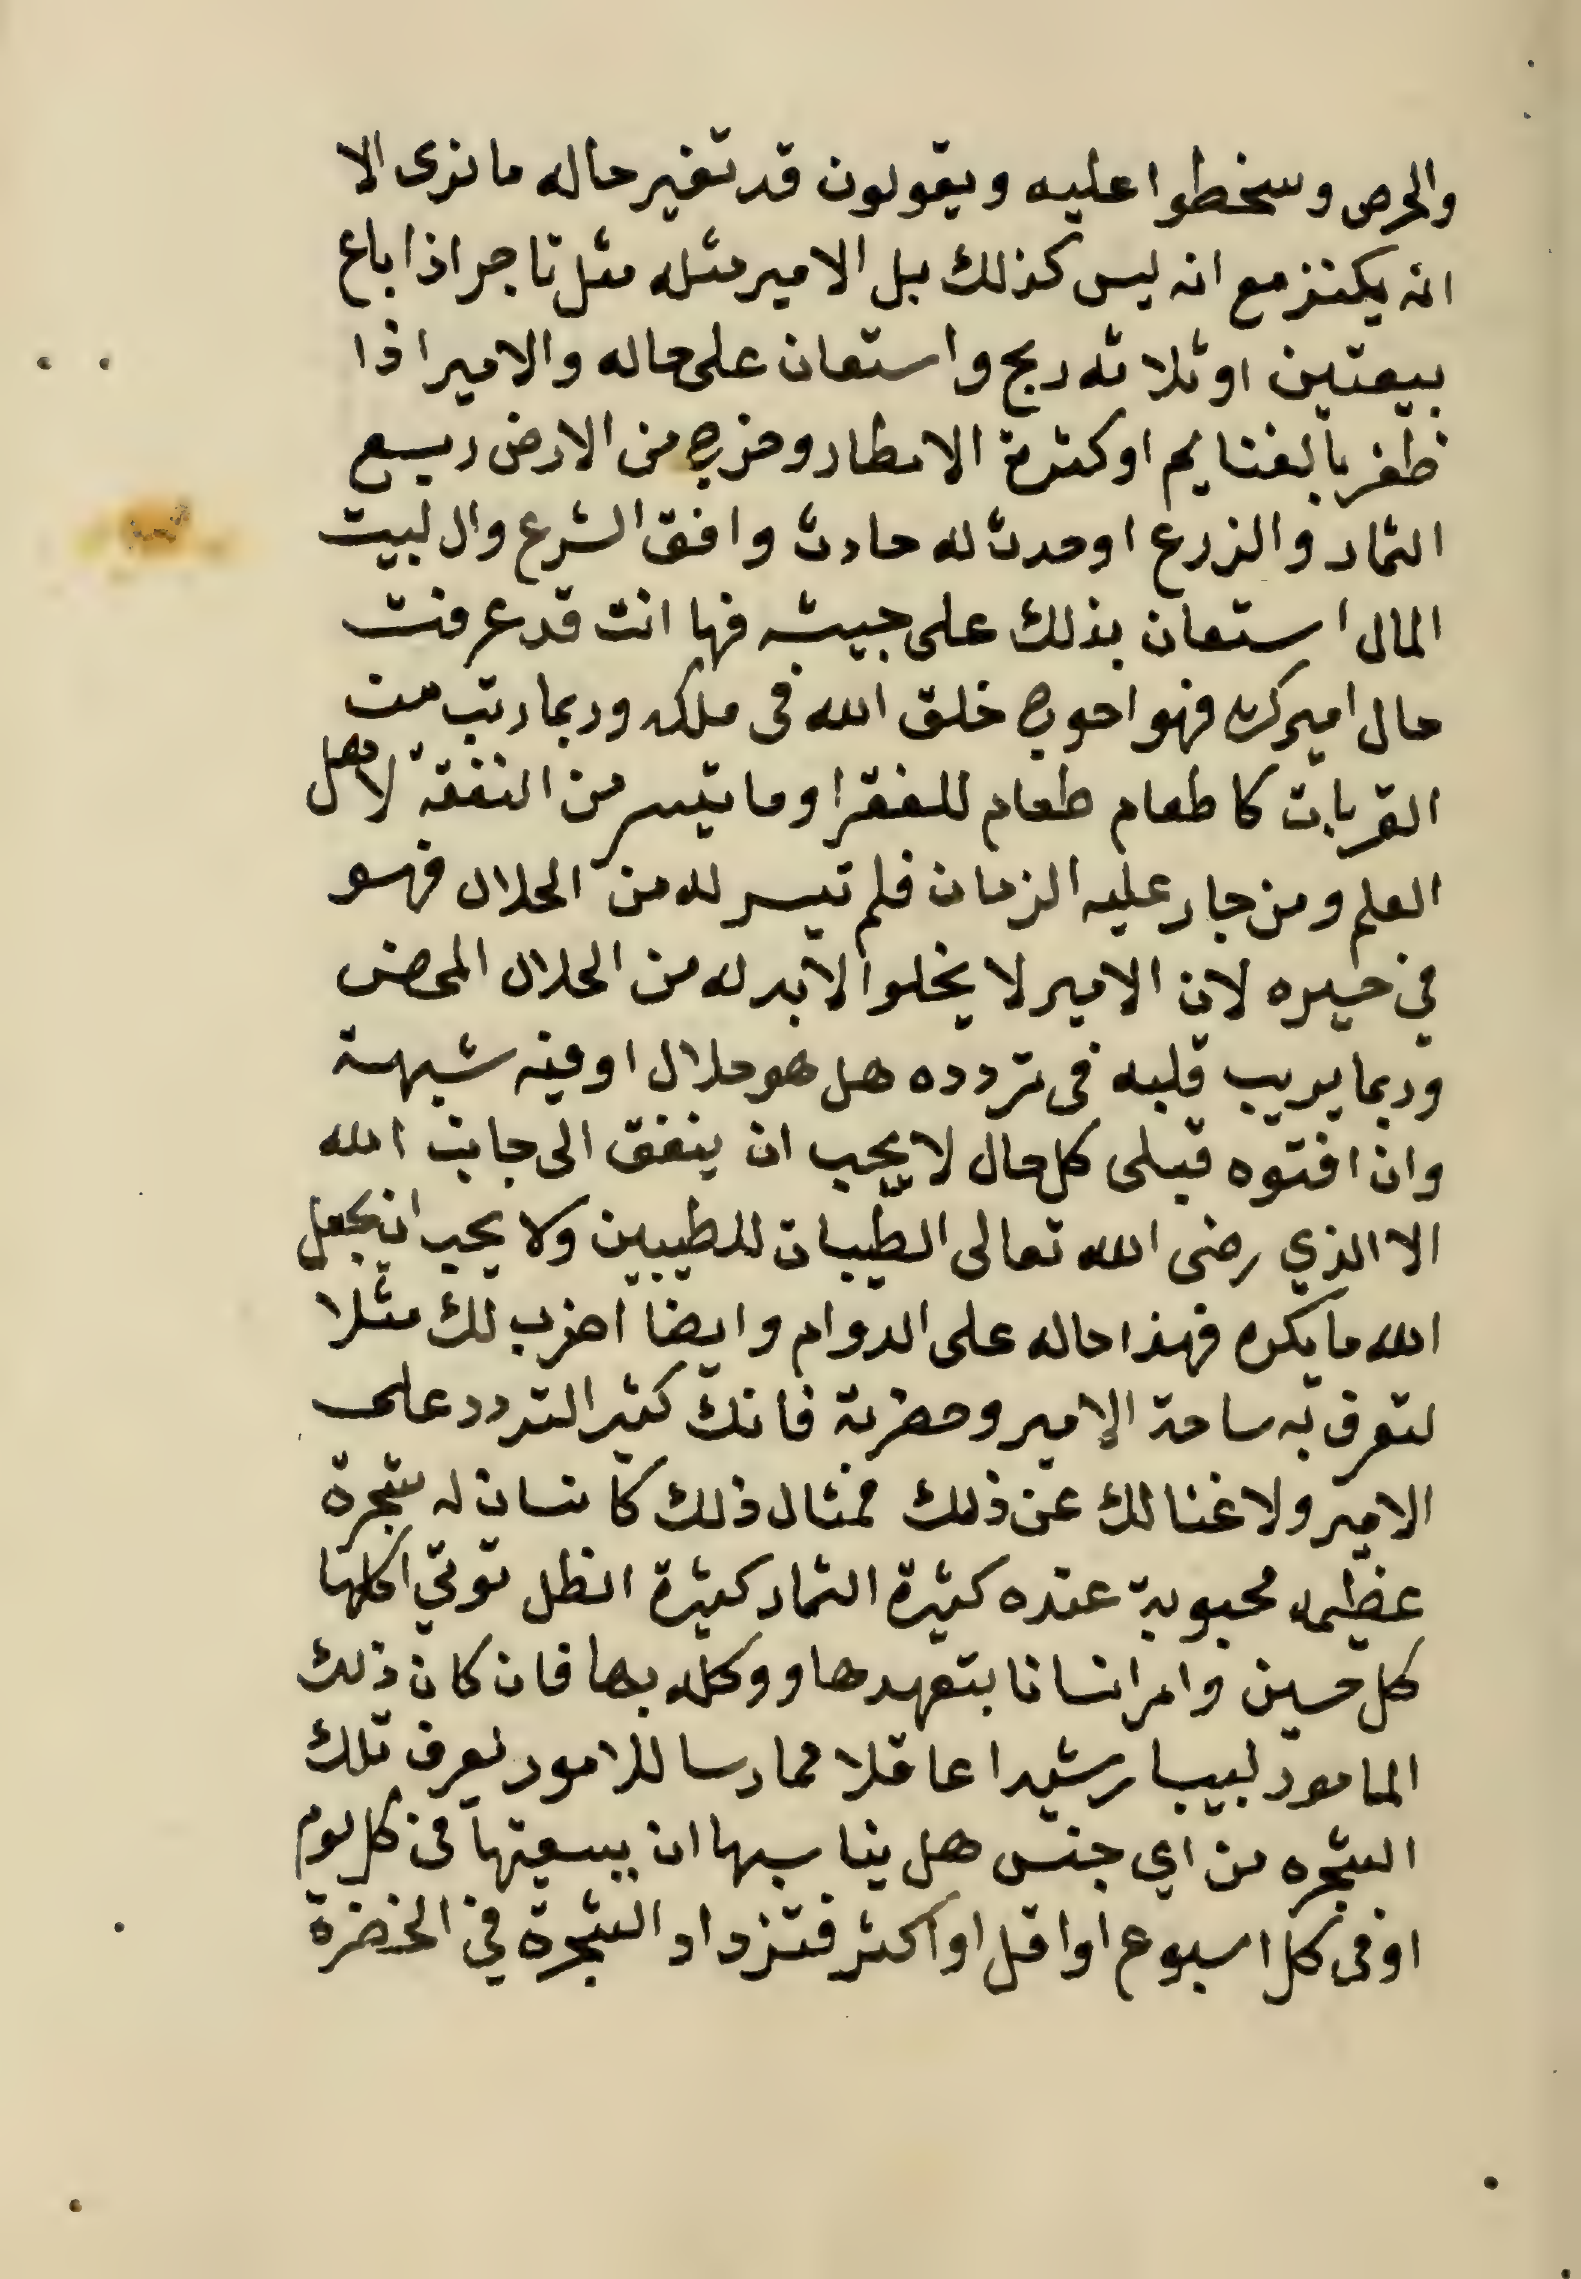 والحرص وسخطوا عليه ويقولون قد تغير حاله ما نرى الا
انه يكنز مع انه ليس كذلك بل الامير مثله مثل تاجر اذا باع
بيعتين او ثلاثه ربح واستعان على حاله والامير اذا
ظفر بالغنايم او كثرة الامطار وخرج من الارض ريع
الثمار والزرع او حدث له حادث وافق الشرع وال لبيت
المال استعان بذلك على جيشه فها انت قد عرفت
حال اميرك فهو احوج خلق الله فى ملكه وربما رتب من
القربات كاطعام طعام للفقرا وما تيسر من النفقة لاهل
العلم ومن جار عليه الزمان فلم تيسر له من الحلال فهو
في حيره لان الامير لا يخلوا لابد له من الحلال المحض
وربما يريب قلبه فى تردده هل هو حلال او فيه شبهة
وان افتوه فبلى كل حال لا يحب ان ينفق الى جانب الله
الا الذي رضى الله تعالى الطيبات للطيبين ولا يحب ان يجعل
الله ما يكره فهذا حاله على الدوام وايضا اضرب لك مثلا
لتعرف به ساحة الامير وحضرته فانك كثير التردد على
الامير ولا غنا لك عن ذلك فمثال ذلك كانسان له شجرة
عظيمه محبوبة عنده كثيرة الثمار كثيرة الظل توتي اكلها
كل حين وامر انسانا بتعهدها ووكله بها فان كان ذلك
المامور لبيبا رشيدا عاقلا ممارسا للامور يعرف تلك
الشجره من اي جنس هل يناسبها ان يسقيها فى كل يوم
او فى كل اسبوع او اقل او اكثر فتزداد الشجرة في الخضرة